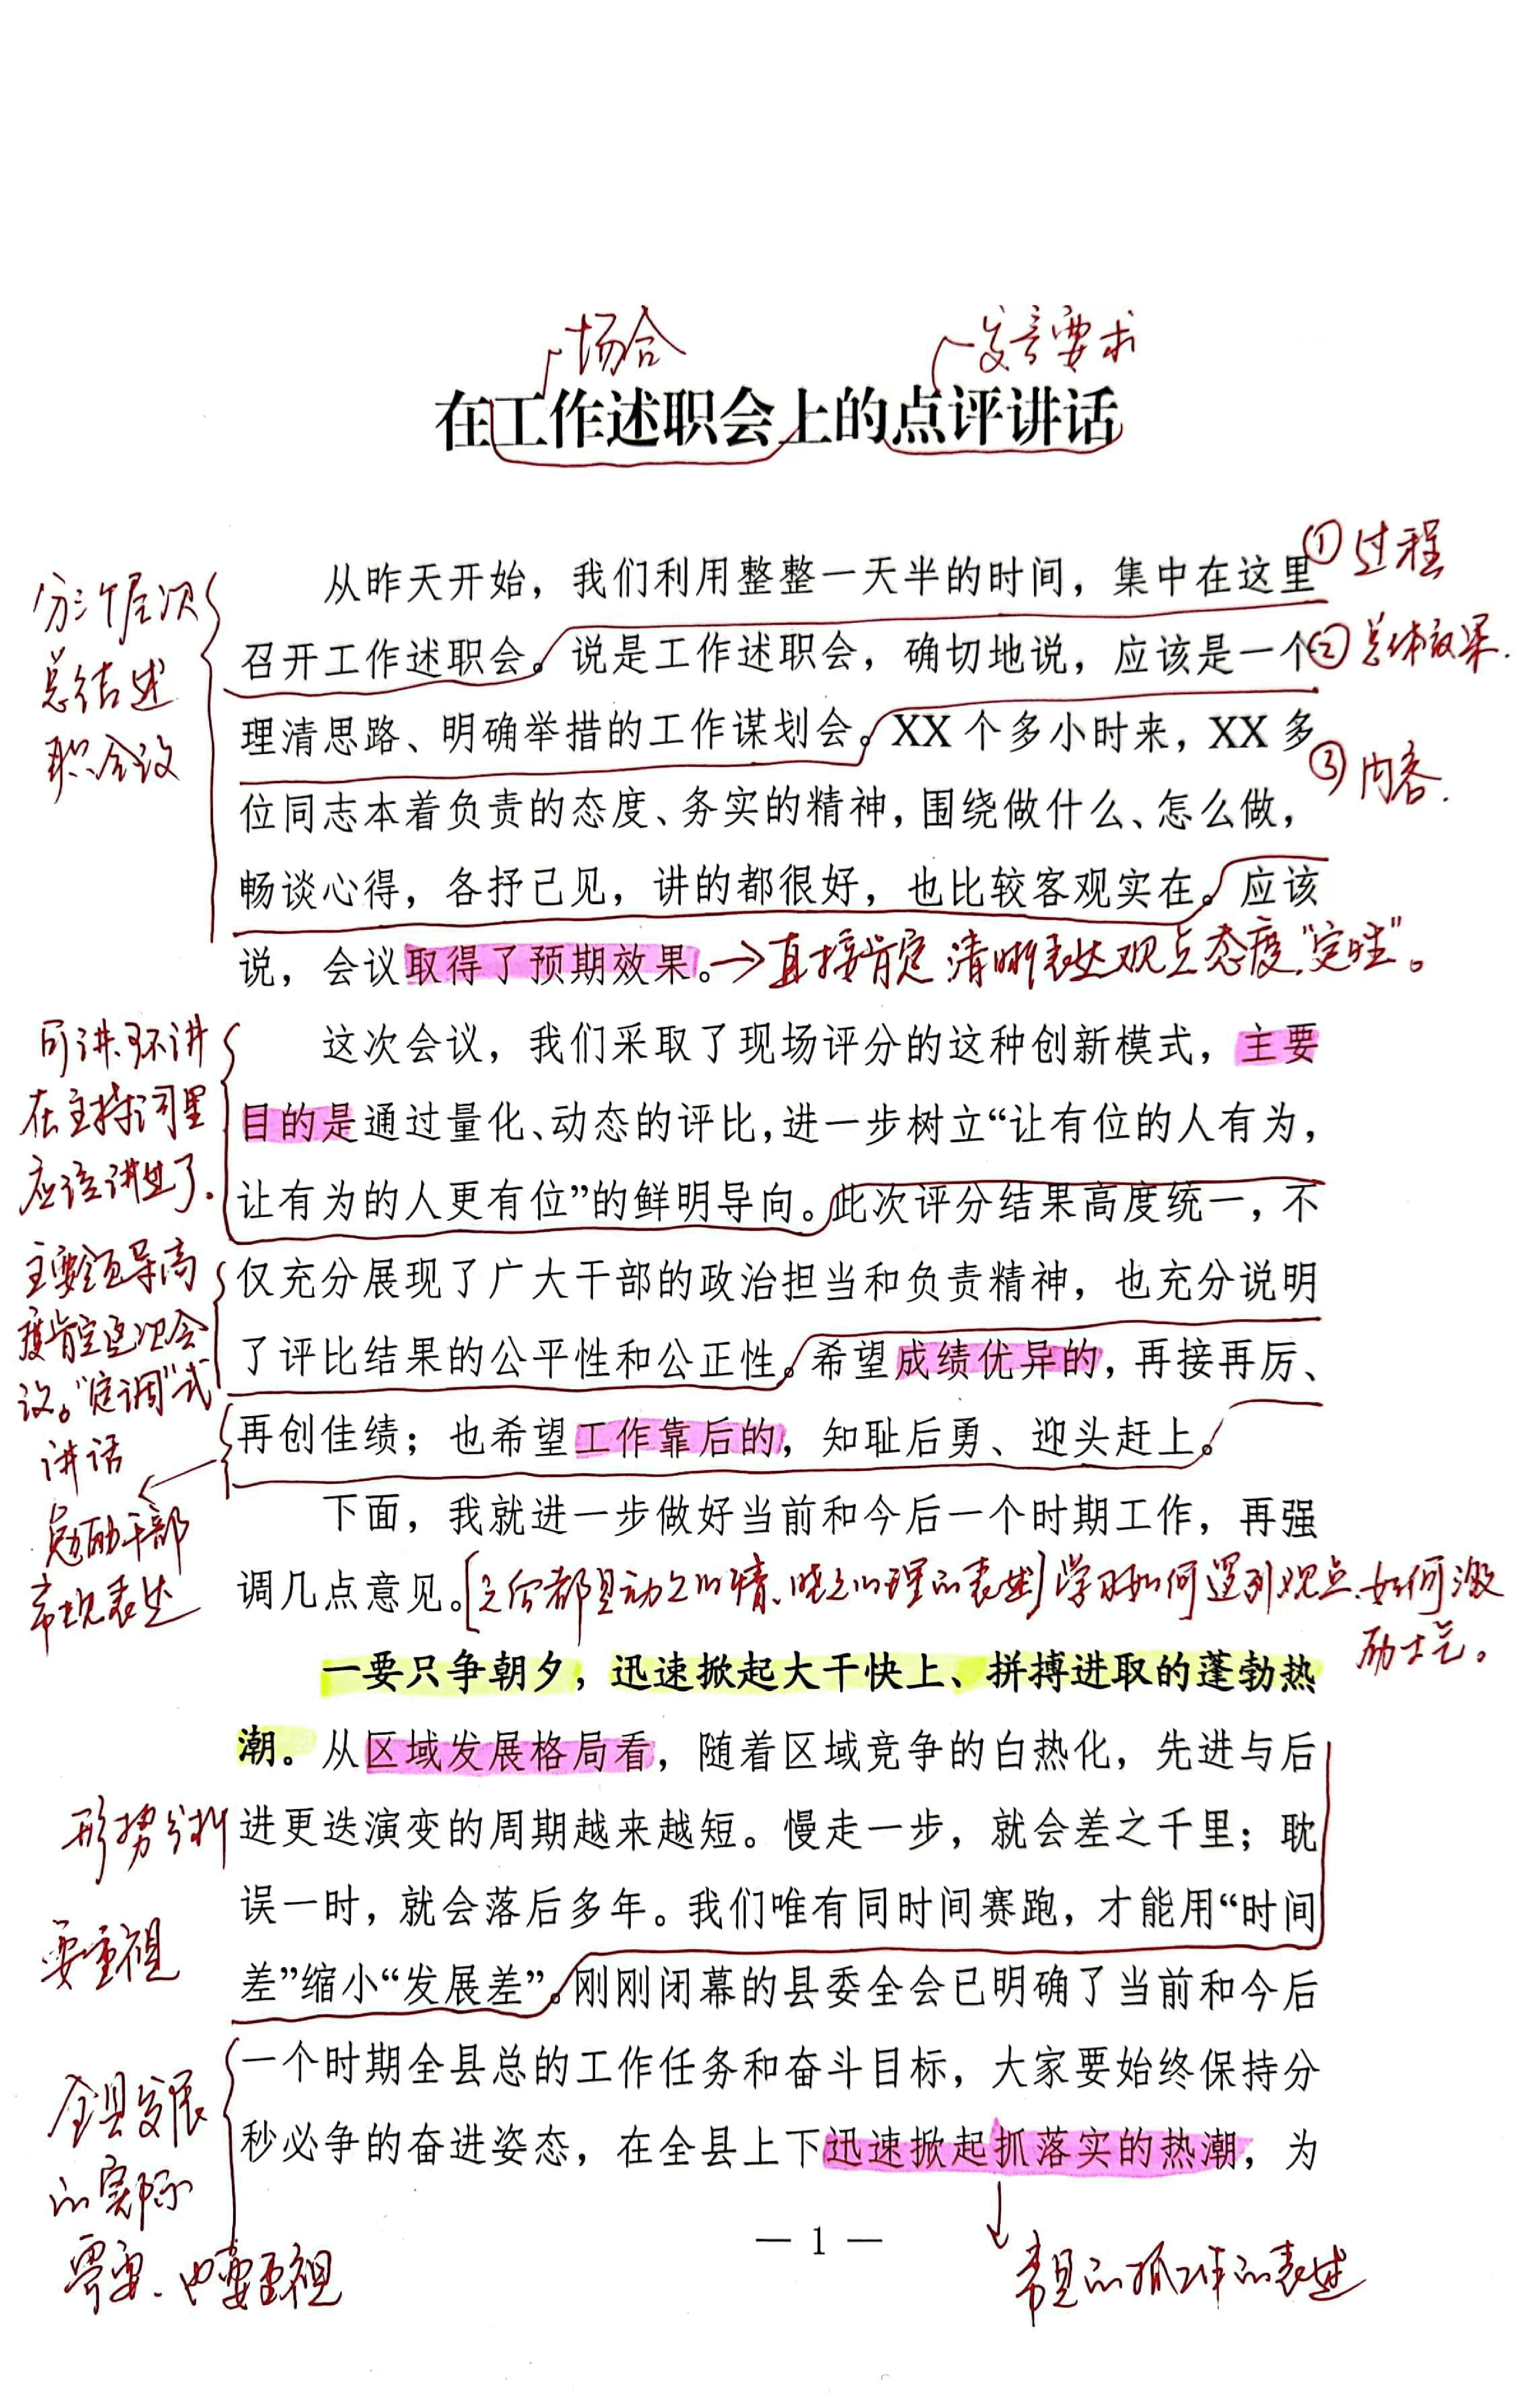 场合
发言要求
在工作述职会上的点评讲话
分三个层次
总结述
职会议
从昨天开始，我们利用整整一天半的时间，集中在这里
①过程
召开工作述职会。说是工作述职会，确切地说，应该是一个
②总体效果.
理清思路、明确举措的工作谋划会。XX 个多小时来，XX 多
③内容.
位同志本着负责的态度、务实的精神，围绕做什么、怎么做，
畅谈心得，各抒己见，讲的都很好，也比较客观实在。应该
说，会议取得了预期效果。→直接肯定 清晰表达观点态度."定性"。
可讲、可不讲
在主持词里
应该讲过了.
这次会议，我们采取了现场评分的这种创新模式，主要
目的是通过量化、动态的评比，进一步树立“让有位的人有为，
让有为的人更有位”的鲜明导向。此次评分结果高度统一，不
主要领导高
度肯定这次会
议。"定调"式
讲话
仅充分展现了广大干部的政治担当和负责精神，也充分说明
了评比结果的公平性和公正性。希望成绩优异的，再接再厉、
再创佳绩；也希望工作靠后的，知耻后勇、迎头赶上。
勉励干部
常规表述
下面，我就进一步做好当前和今后一个时期工作，再强
调几点意见。[之后都是动之以情、晓之以理的表述]学习如何罗列观点、如何激
励士气。
一要只争朝夕，迅速掀起大干快上、拼搏进取的蓬勃热
潮。从区域发展格局看，随着区域竞争的白热化，先进与后
形势分析
要重视
进更迭演变的周期越来越短。慢走一步，就会差之千里；耽
误一时，就会落后多年。我们唯有同时间赛跑，才能用“时间
差”缩小“发展差”。刚刚闭幕的县委全会已明确了当前和今后
一个时期全县总的工作任务和奋斗目标，大家要始终保持分
秒必争的奋进姿态，在全县上下迅速掀起抓落实的热潮，为
全县发展
的实际
需要、也要重视
— 1 —
常见的抓工作的表述